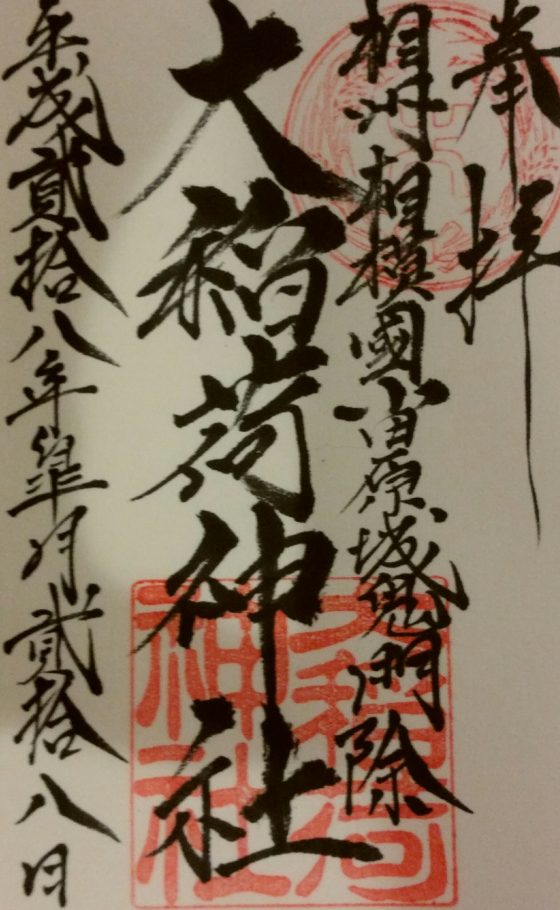 奉拝
相州相模國小田原城鬼門除
大稲荷神社
平成貳拾八年皐月貳拾八日
大稲荷神社